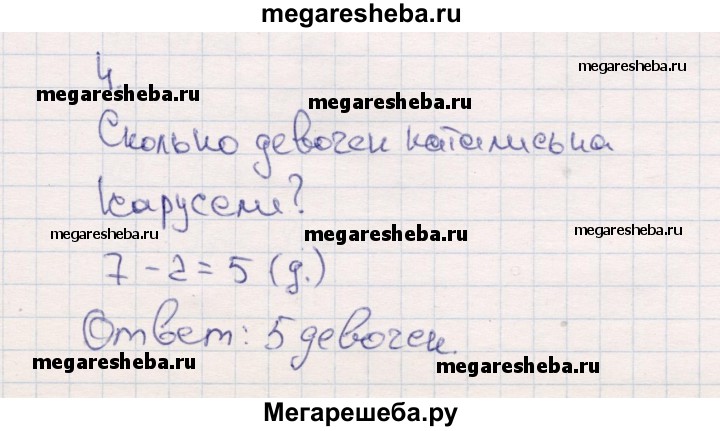 megaresheba.ru
4.
megaresheba.ru
megaresheba.ru
megaresheba.ru
Сколько девочек катались на
карусели?
megaresheba.ru
megaresheba.ru
megaresheba.ru
7 - 2 = 5 (д.)
Ответ: 5 девочек.
megaresheba.ru
megaresheba.ru
Мегарешеба.ру